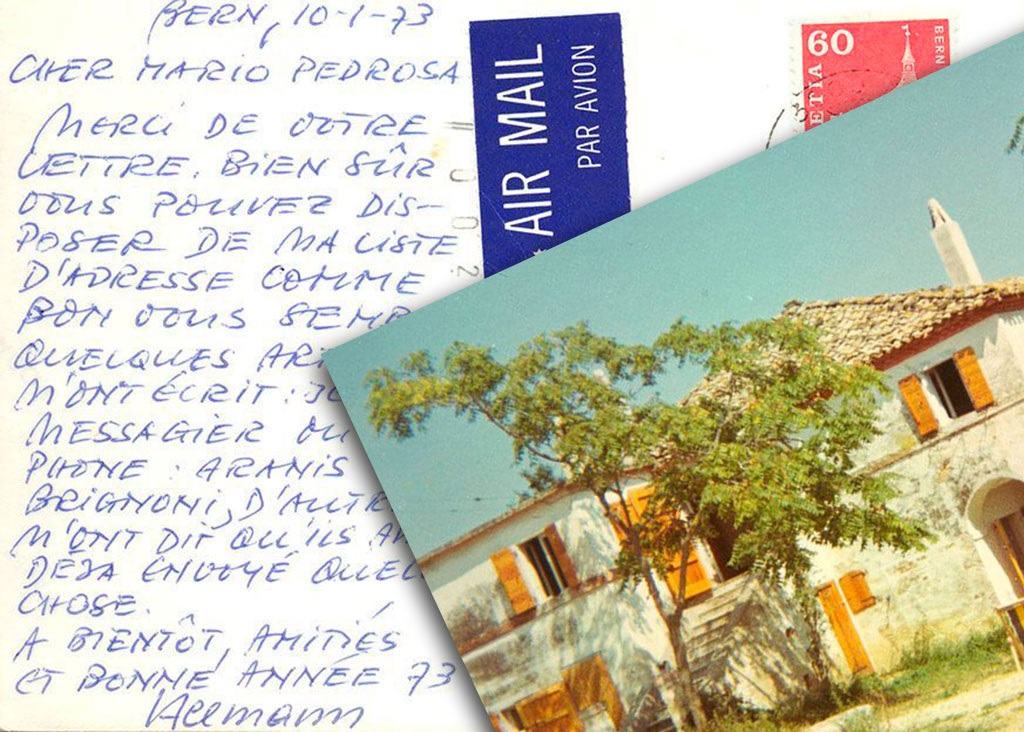 BERN, 10-1-73
CHER MARIO PEDROSA
MERCI DE VOTRE
LETTRE. BIEN SÛR
VOUS POUVEZ DIS-
POSER DE MA LISTE
D'ADRESSE COMME
BON VOUS SEMB
QUELQUES AR
M'ONT ÉCRIT :
MESSAGIER OU
PHONE : ARANIS
BRIGNONI, D'AUTR
M'ONT DIT QU'ILS AV
DEJA ENVOYÉ QUEL
CHOSE.
A BIENTÔT, AMITIÉS
ET BONNE ANNÉE 73
AIR MAIL
PAR AVION
60
BERN
ETIA